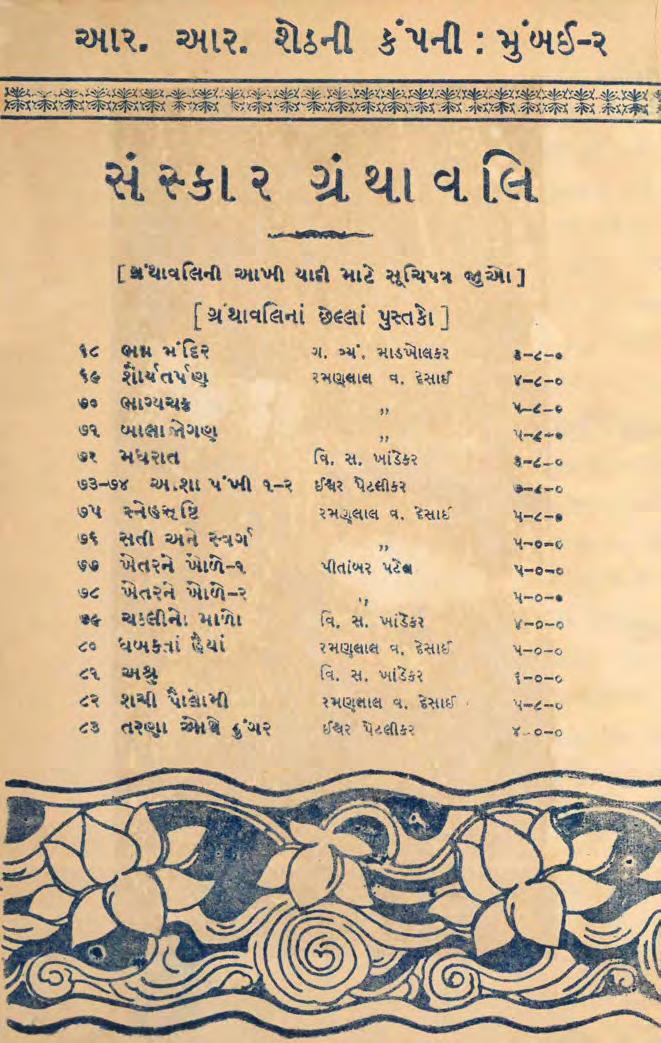 આર. આર. શેઠની કંપની : મુંબઈ-૨
સંસ્કાર ગ્રંથાવલિ
[ ગ્રંથાવલિની આખી યાદી માટે સૂચિપત્ર જુઓ ]
[ ગ્રંથાવલિનાં છેલ્લાં પુસ્તકો ]
૬૮ ભગ્ન મંદિર ગ. ત્ર્યં. માડખોલકર ૩-૮-૦
૬૯ શૌર્યતર્પણ રમણલાલ વ. દેસાઈ ૪-૮-૦
૭૦ ભાગ્યચક્ર ,, ૫-૮-૦
૭૧ બાલાજોગણ ,, ૫-૮-૦
૭૨ મધરાત વિ. સ. ખાંડેકર ૩-૮-૦
૭૩-૭૪ આશા પંખી ૧-૨ ઈશ્વર પેટલીકર ૭-૮-૦
૭૫ સ્નેહસૃષ્ટિ રમણલાલ વ. દેસાઈ ૫-૮-૦
૭૬ સતી અને સ્વર્ગ ,, ૫-૦-૦
૭૭ ખેતરને ખોળે-૧ પીતાંબર પટેલ ૫-૦-૦
૭૮ ખેતરને ખોળે-૨ ,, ૫-૦-૦
૭૯ ચકલીનો માળો વિ. સ. ખાંડેકર ૪-૦-૦
૮૦ ધબકતાં હૈયાં રમણલાલ વ. દેસાઈ ૫-૦-૦
૮૧ અશ્રુ વિ. સ. ખાંડેકર ૬-૦-૦
૮૨ શચી પૌલોમી રમણલાલ વ. દેસાઈ ૫-૮-૦
૮૩ તરણા ઓથે ડુંગર ઈશ્વર પેટલીકર ૪-૦-૦